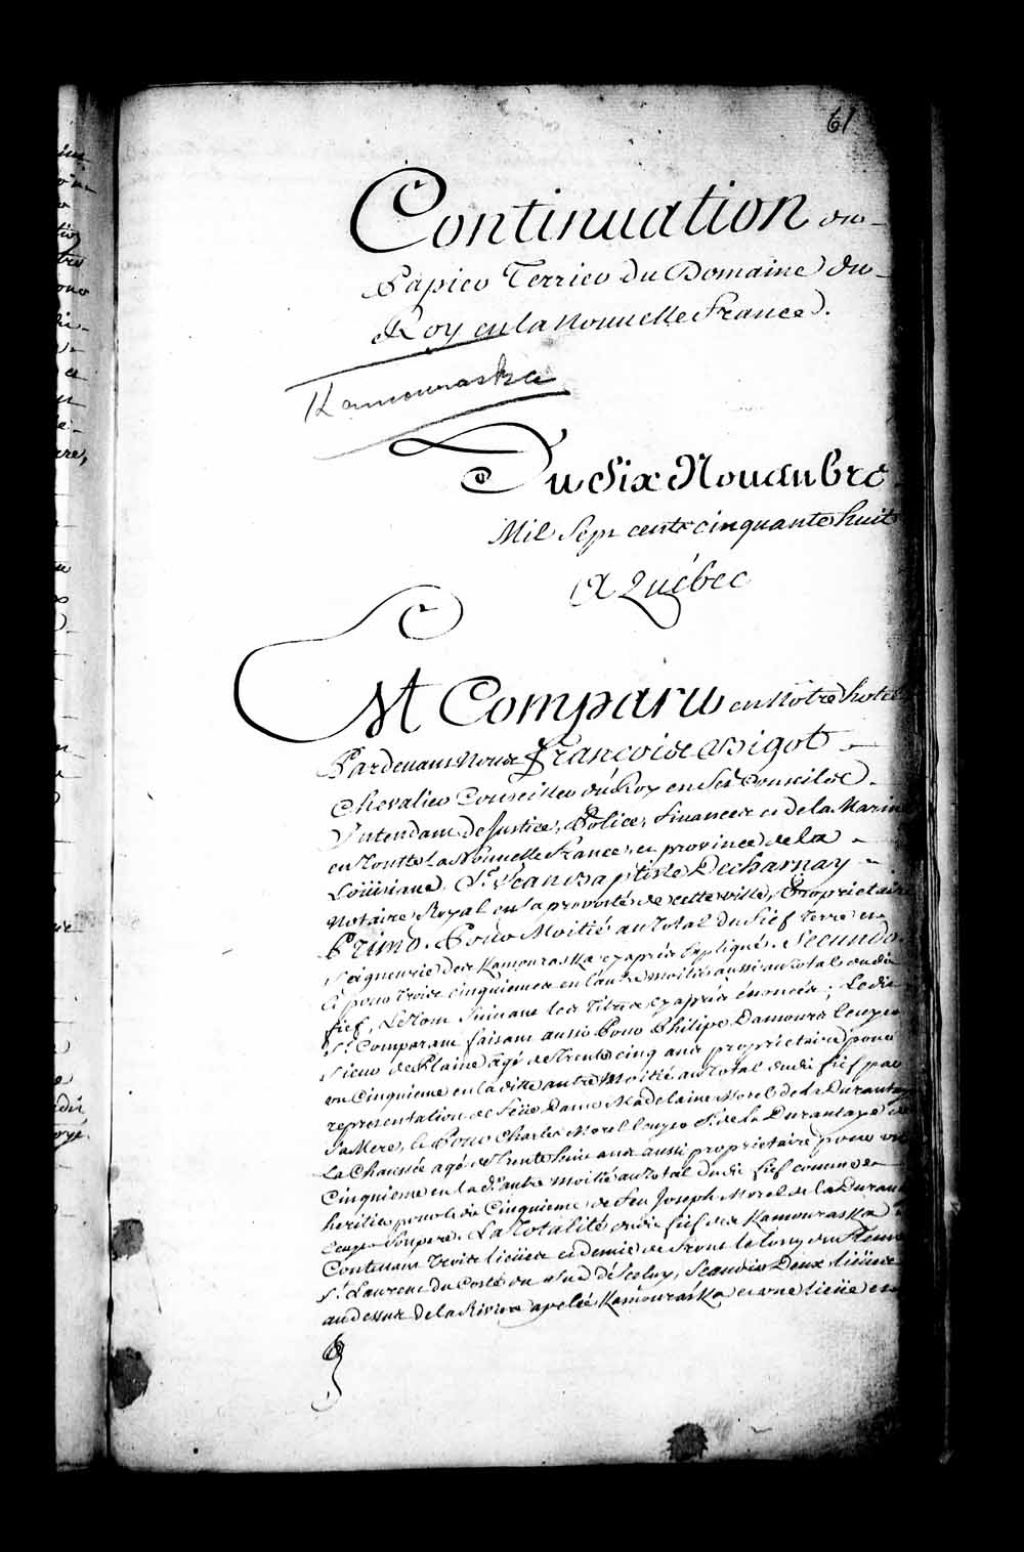 61
Continuation du
Papier Terrier du Domaine du
Roy en la Nouuelle France.
Kamouraska
Du Six Nouembre
Mil Sept cents cinquante huit
A Québec
Est Comparu en Nôtre hotel
Pardeuant Nous François Bigot
Chevalier Conseiller du Roy en Ses Conseils
Intendant de Justice, Police, Finances et de la Marine
en Toutte La Nouuelle France, et province de la
Loüisiane, Sr. Jean Baptiste Decharnay
Notaire Royal en la prevoté de cette ville, Proprietaire
Primo. Pour Moitié au Total du Fief Terre et
Seigneurie des Kamouraska cy aprés Expliqué. Secundo.
Et pour Trois cinquiemes en l'autre moitié aussi au Total dudit
fief, Le Tout Suivant les Titres cy aprés énoncés; Ledit
Sr. Comparant faisant aussi Pour Philipe Damours Ecuyer
Sieur de Plaine âgé de Trente cinq ans proprietaire pour
un Cinquieme en la ditte autre Moitié au Total dudit fief par
representation de feüe Dame Madelaine Morel de la Durantaye
Sa Mere, & Pour Charles Morel Ecuyer Sr. de La Durantaye de
La Chaussée agé de Trente huit ans aussi proprietaire pour un
Cinquieme en lad. autre moitié au Total dudit fief comme
heritier pour led. Cinquieme de feu Joseph Morel de la Durantaye
Ecuyer Son pere. La Totalité dudit fief des Kamouraska
Contenant Trois lieües et demie de front le long du fleuve
St. Laurent du Costé du Sud Scavoir Deux lieües
au dessus de la Riviere apelée Kamouraska et une lieüe et